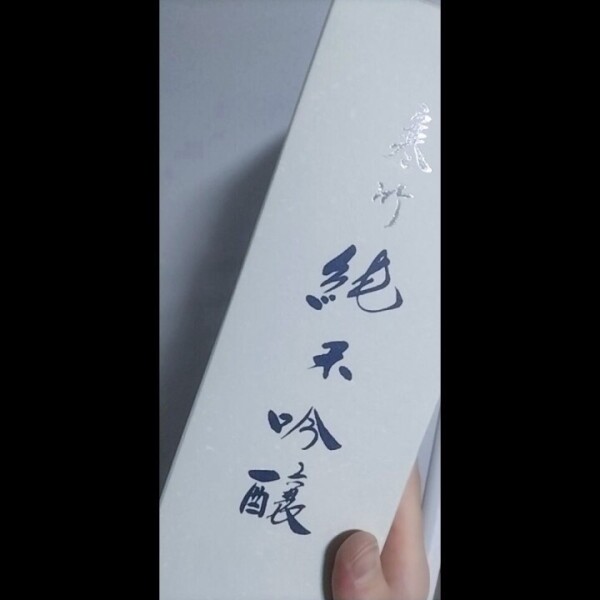 寒竹
純大吟醸